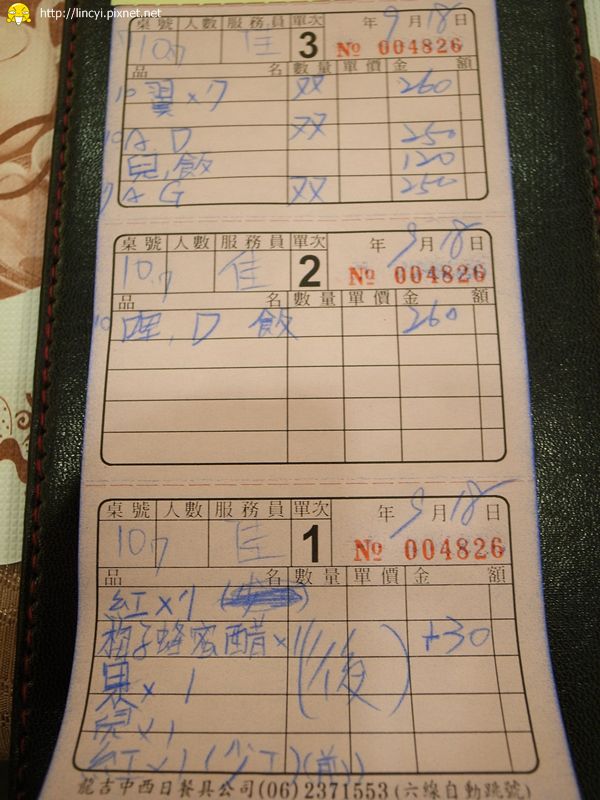 http://lincyi.pixnet.net
桌號 人數 服務員 單次 年 9 月 18 日
10,7 佳 3 No 004826
品 名 數量 單價 金 額
10 翼 x7 双 260
10 A. D 双 250
兒,飯 120
A G 双 250
桌號 人數 服務員 單次 年 9 月 18 日
10,7 佳 2 No 004826
品 名 數量 單價 金 額
10 哩, D 飯 260
桌號 人數 服務員 單次 年 9 月 18 日
10,7 佳 1 No 004826
品 名 數量 單價 金 額
紅x1
梅子蜂蜜醋x1 (後) +30
果x1
兒x1
紅x1 (少工) (前)
龍吉中西日餐具公司(06)2371553(六線自動跳號)